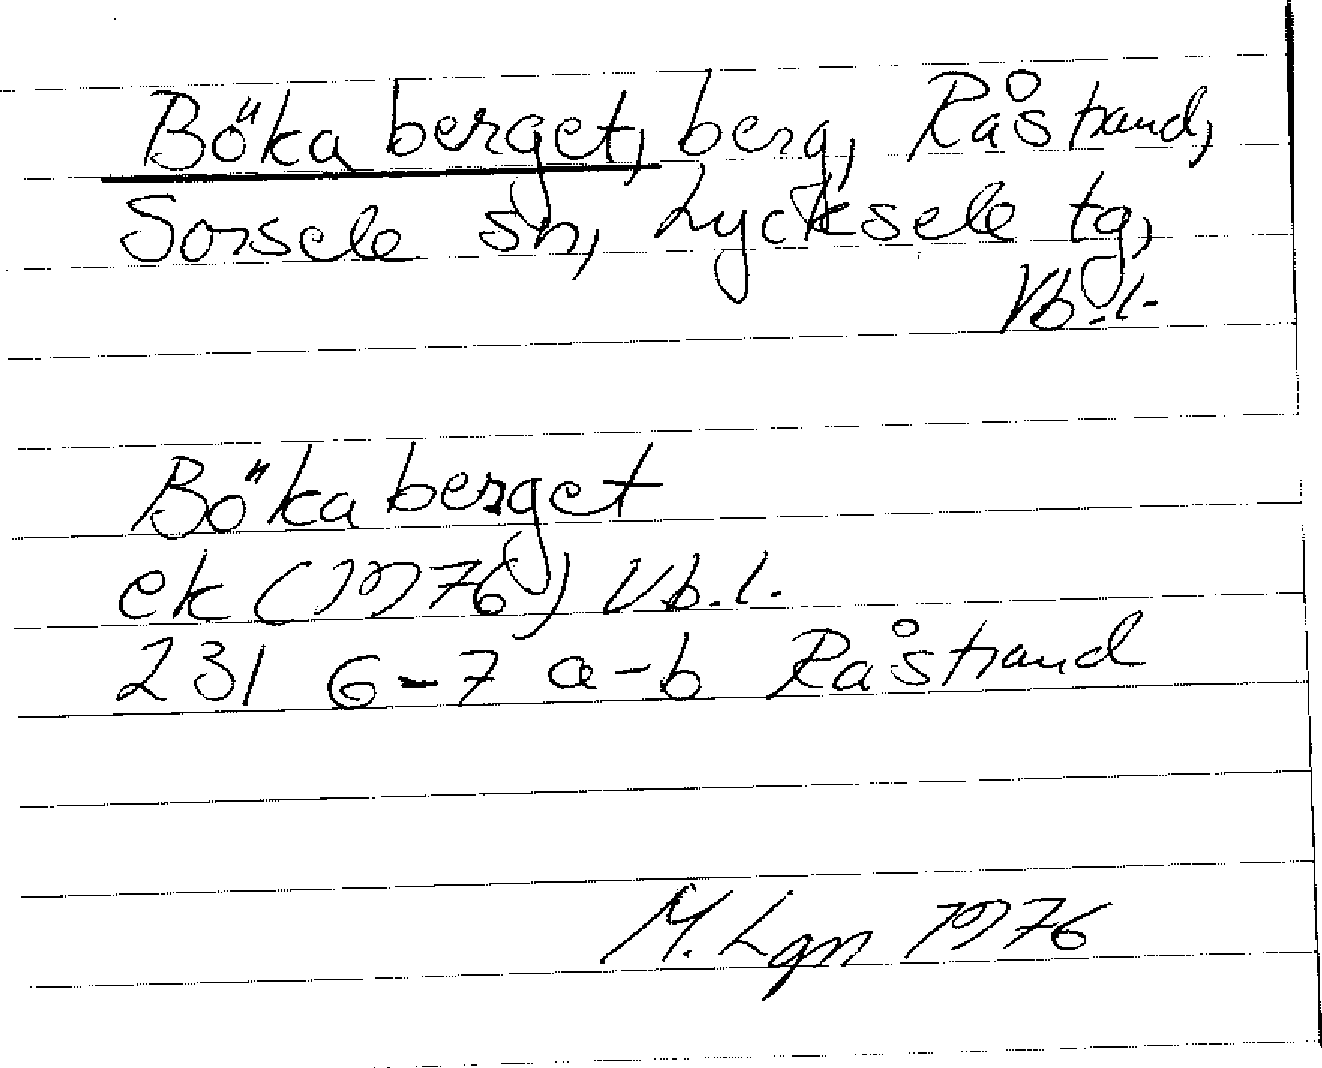 Böka berget, berg, Råstrand,
Sorsele sn, Lycksele tg,
Vb.l.
Böka berget
ek (1976) Vb.l.
231 6-7 a-b Råstrand
M. Lgn 1976